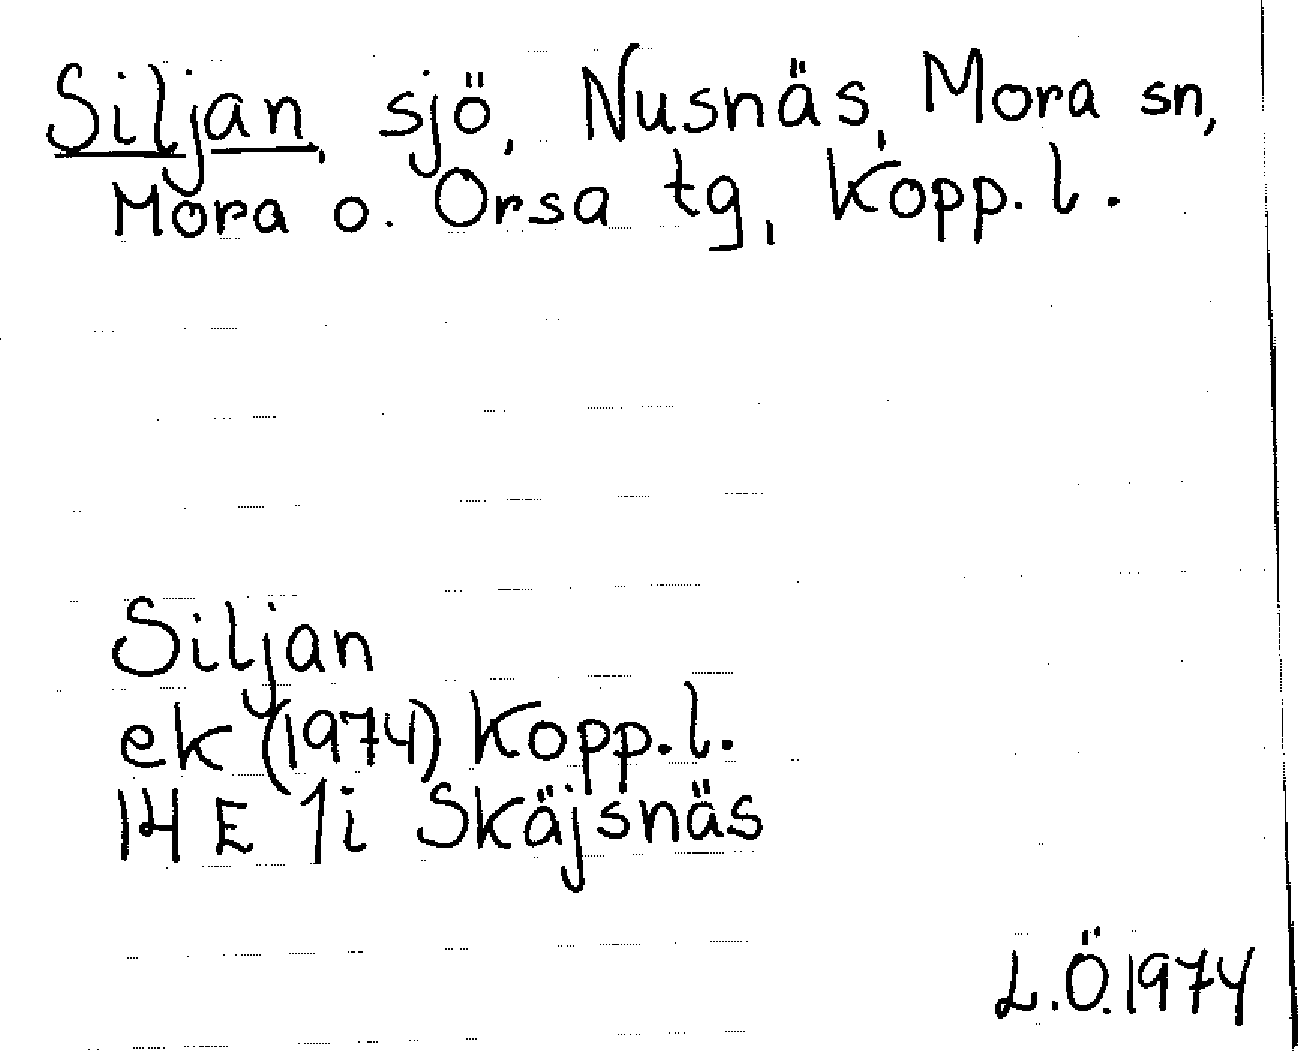 Siljan, sjö, Nusnäs, Mora sn,
Mora o. Orsa tg, Kopp. l.
Siljan
ek (1974) Kopp. l.
14 E 1i Skäjsnäs
L.Ö. 1974